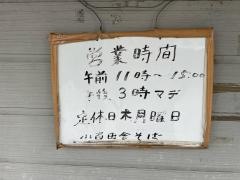 営業時間
午前 11時〜15:00
午後 3時マデ
定休日 木月曜日
小 田舎そば